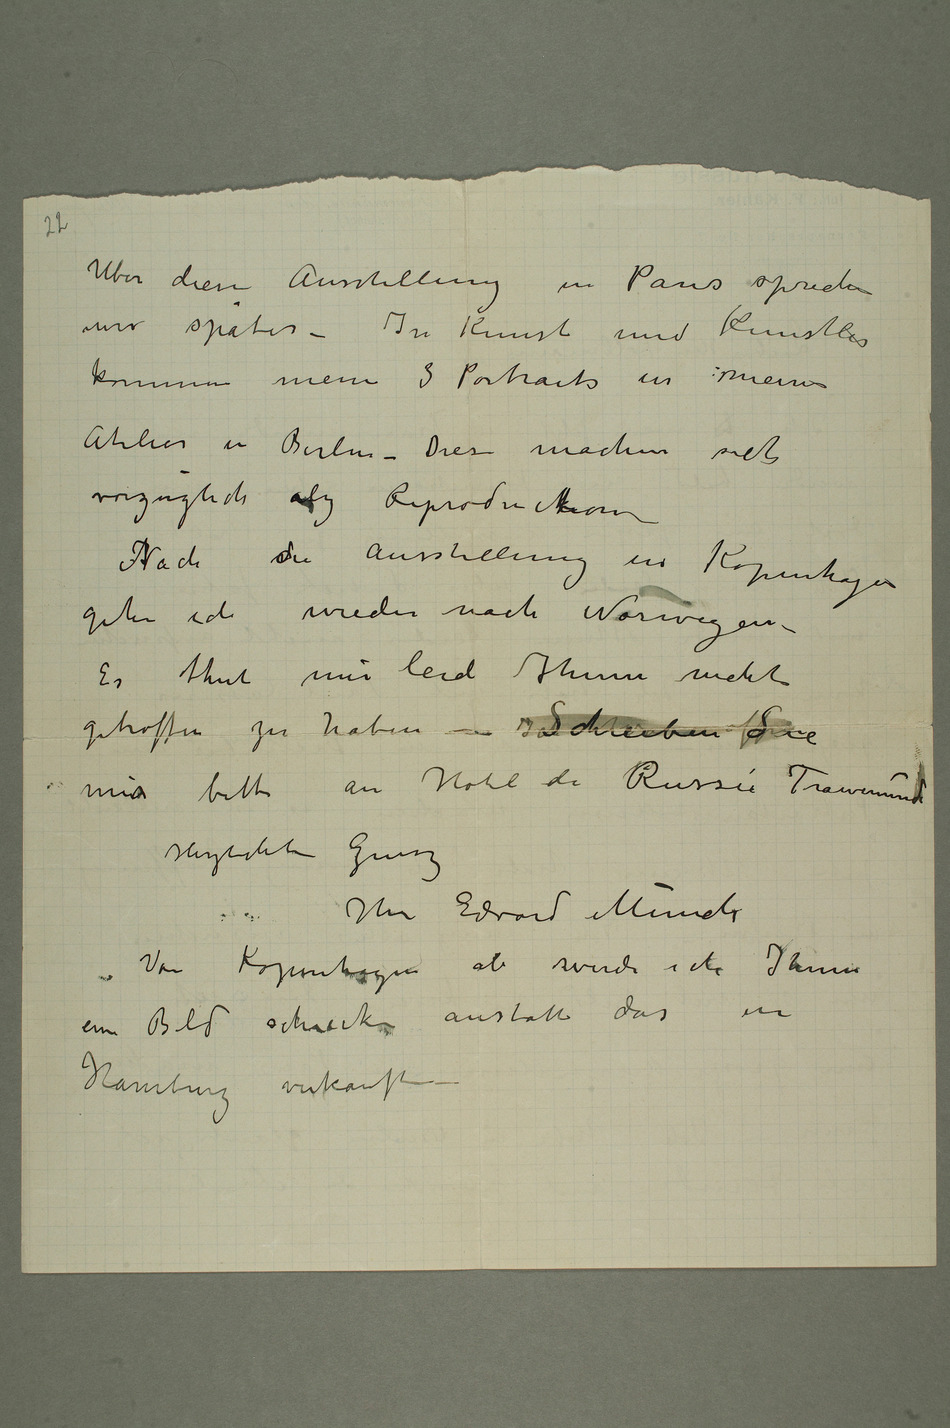 22
Über diese Ausstellung in Paris sprechen
wir später – In Kunst und Künstler
kommen meine 3 Portraits in meinem
Atelier in Berlin – Diese machen sich
vorzüglich als Reproduktion
Nach die Ausstellung in Kopenhagen
gehe ich wieder nach Norwegen –
Es thut mir leid Ihnen nicht
getroffen zu haben – Schreiben Sie
mir bitte an Hotel de Russie Travemünde
Herzlichste Grusz
Ihr Edvard Munch
Von Kopenhagen ab werde ich Ihnen
ein Bild schicken anstatt das in
Hamburg verkauft –